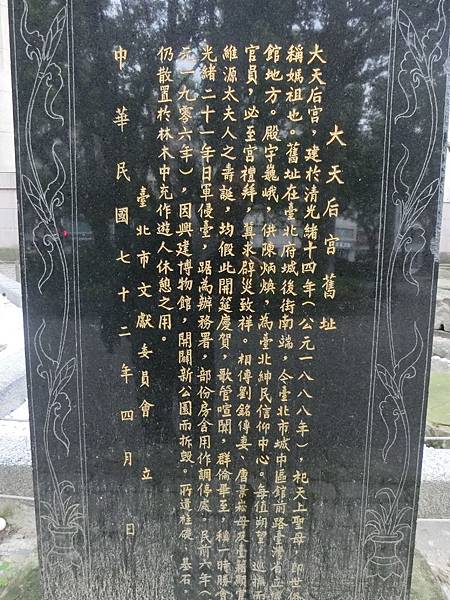 大天后宮舊址
大天后宮，建於清光緒十四年（公元一八八八年），祀天上聖母，即世俗
稱媽祖也。舊址在臺北府城後街南端，今臺北市城中區館前路臺灣省立博
館地方。殿宇巍峨，供陳炳煥，為臺北紳民信仰中心。每值朔望，巡撫而
官員，必至宮禮拜，冀求辟災致祥。相傳劉銘傳妻、唐景崧母及臺籍顯宦
維源太夫人之壽誕，均假此開筵慶賀，歌管喧闐，群倫畢至，稱一時勝會
光緒二十一年日軍侵臺，踞為辦務署，部份房舍用作調停處。民前六年（
元一九零六年），因興建博物館，開闢新公園而拆毀。所遺柱礎、基石，
仍散置於林木中充作遊人休憩之用。
臺北市文獻委員會 立
中華民國七十二年四月 日